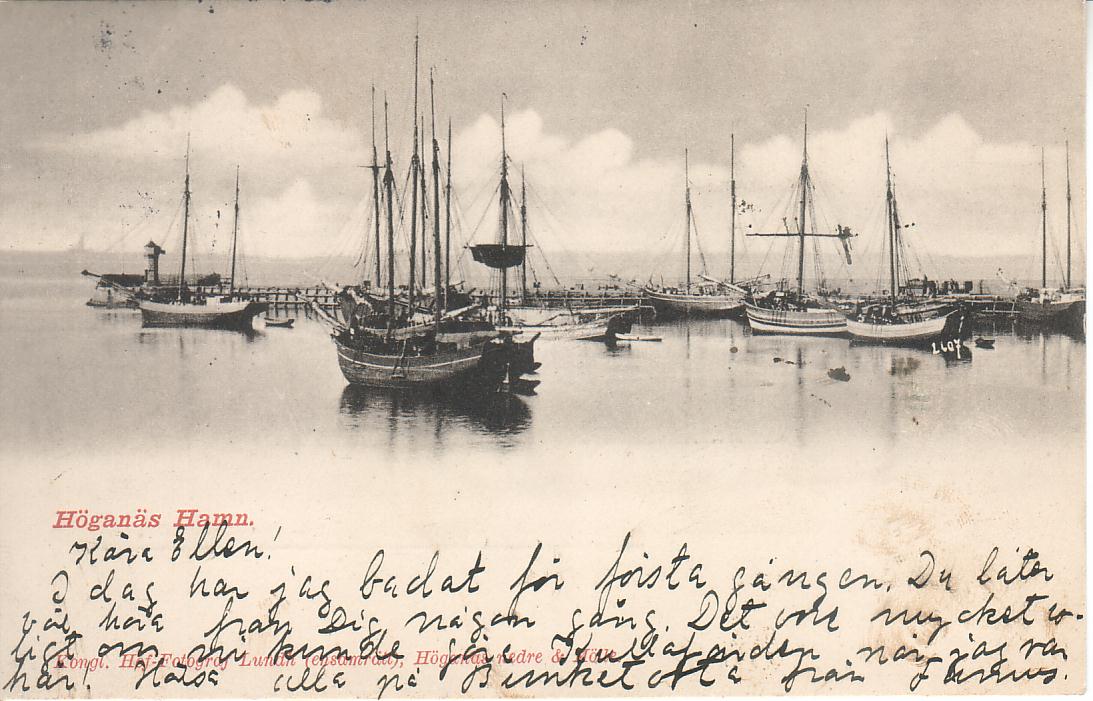 2607
Höganäs Hamn.
Kära Ellen!
I dag har jag badat för första gången. Du låter
väl höra från Dig någon gång. Det vore mycket ro-
ligt om ni kunde göra Kullafärden när jag var
här! Hälsa alla på Bunketofta från
Kongl. Hof-Fotograf Lundh (ensamrätt), Höganäs nedre & Mölle